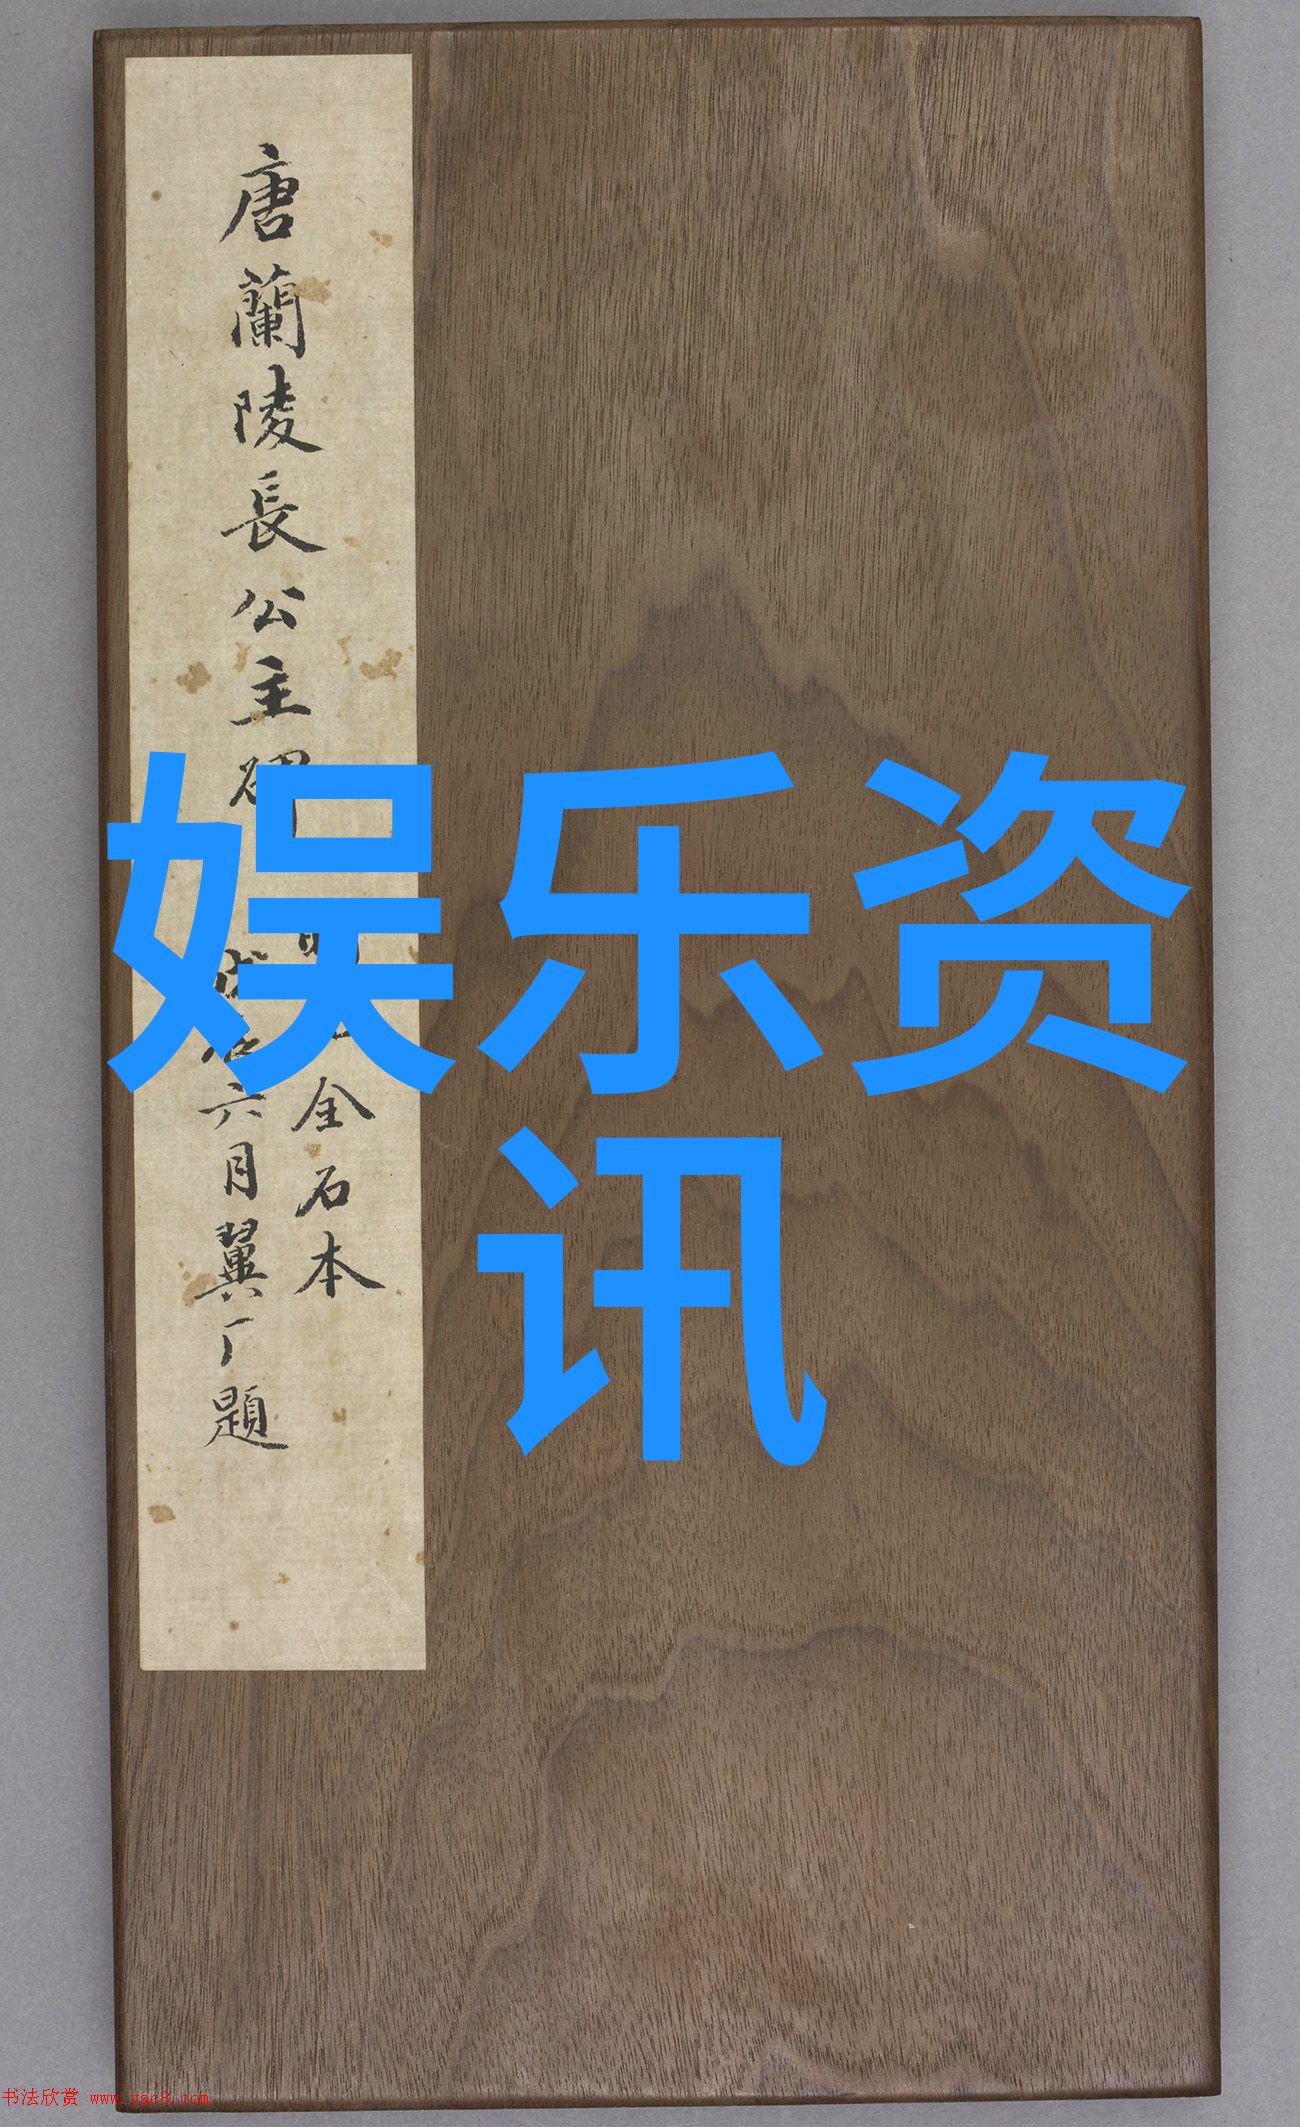 唐蘭陵長公主碑
全石本
六月翼厂題
娱乐资
讯
书法欣赏 www.yac8.com